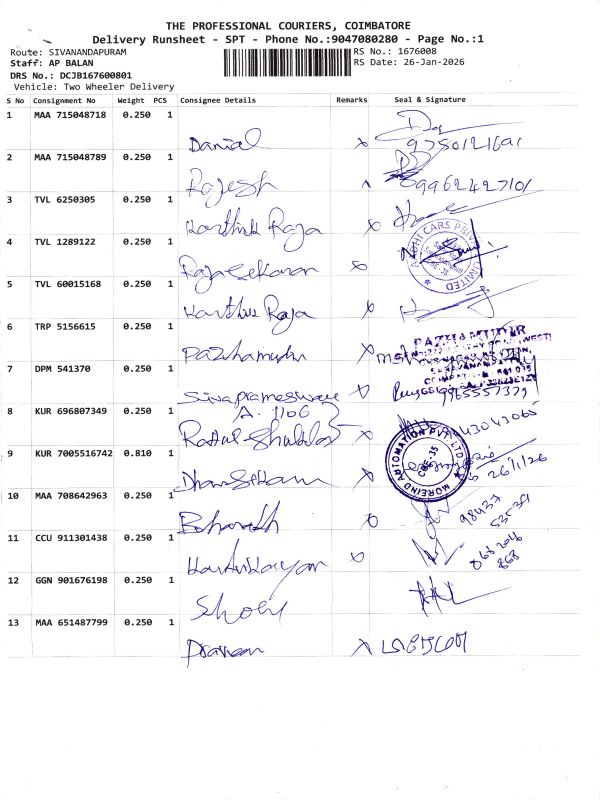 THE PROFESSIONAL COURIERS, COIMBATORE
Delivery Runsheet - SPT - Phone No.:9047080280 - Page No.:1
Route: SIVANANDAPURAM
RS No.: 1676008
Staff: AP BALAN
RS Date: 26-Jan-2026
DRS No.: DCJB167600801
Vehicle: Two Wheeler Delivery
S No Consignment No Weight PCS Consignee Details Remarks Seal & Signature
1 MAA 715048718 0.250 1 Danial
2 MAA 715048789 0.250 1 Rajesh 9962427101
3 TVL 6250305 0.250 1 Karthik Raja
4 TVL 1289122 0.250 1 Rajasekaran
5 TVL 60015168 0.250 1 Raja
6 TRP 5156615 0.250 1 Pazhamudir
PAZHAMUDIR
7 DPM 541370 0.250 1 9965557379
A. 1106
8 KUR 696807349 0.250 1
9 KUR 7005516742 0.810 1 Dhanasekaran 26/1/26
MOREIND AUTOMATION PVT LTD
10 MAA 708642963 0.250 1 Bharath
11 CCU 911301438 0.250 1
12 GGN 901676198 0.250 1
13 MAA 651487799 0.250 1 Praveen